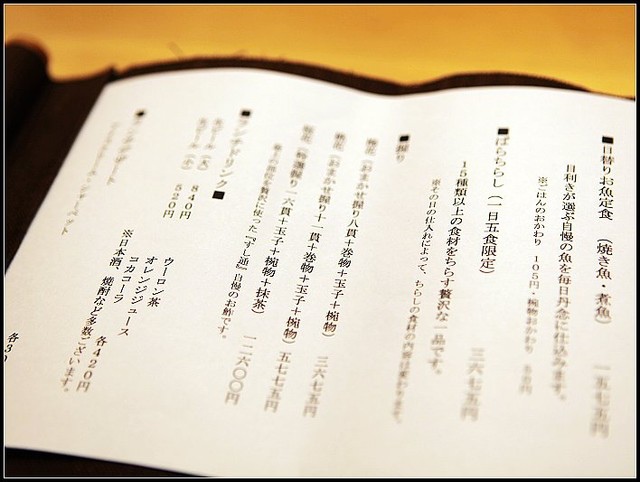 ■日替りお魚定食 (焼き魚・煮魚) 一五七五円
目利きが選ぶ自慢の魚を毎日丹念に仕込みます。
※ごはんのおかわり 105円・椀物おかわり
■ばらちらし (一日五食限定) 三六七五円
15種類以上の食材をちらす贅沢な一品です。
※その日の仕入れによって、ちらしの食材の内容は変わります。
■握り
(おまかせ握り八貫+巻物+玉子+椀物) 三六七五円
(おまかせ握り十一貫+巻物+玉子+椀物) 五七七五円
(特選握り六貫+玉子+椀物+抹茶) 一二六〇〇円
の部位を贅沢に使った『すし通』自慢のお鮓です。
■ランチドリンク■
生ビール (大) 840円
生ビール (小) 520円
ウーロン茶
オレンジジュース
コカコーラ 各420円
※日本酒、焼酎など多数ございます。
■ランチデザート
シャーベット
各3